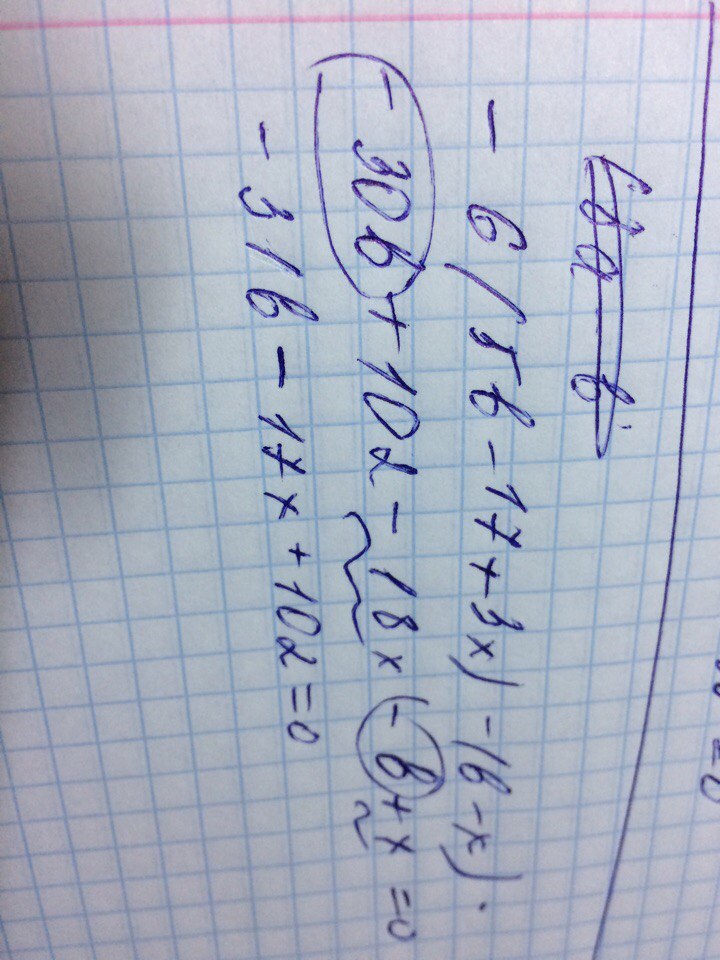 - 6 (5b - 17 + 3x) - (b - x) .
- 30b + 102 - 18x - b + x = 0
- 31b - 17x + 102 = 0